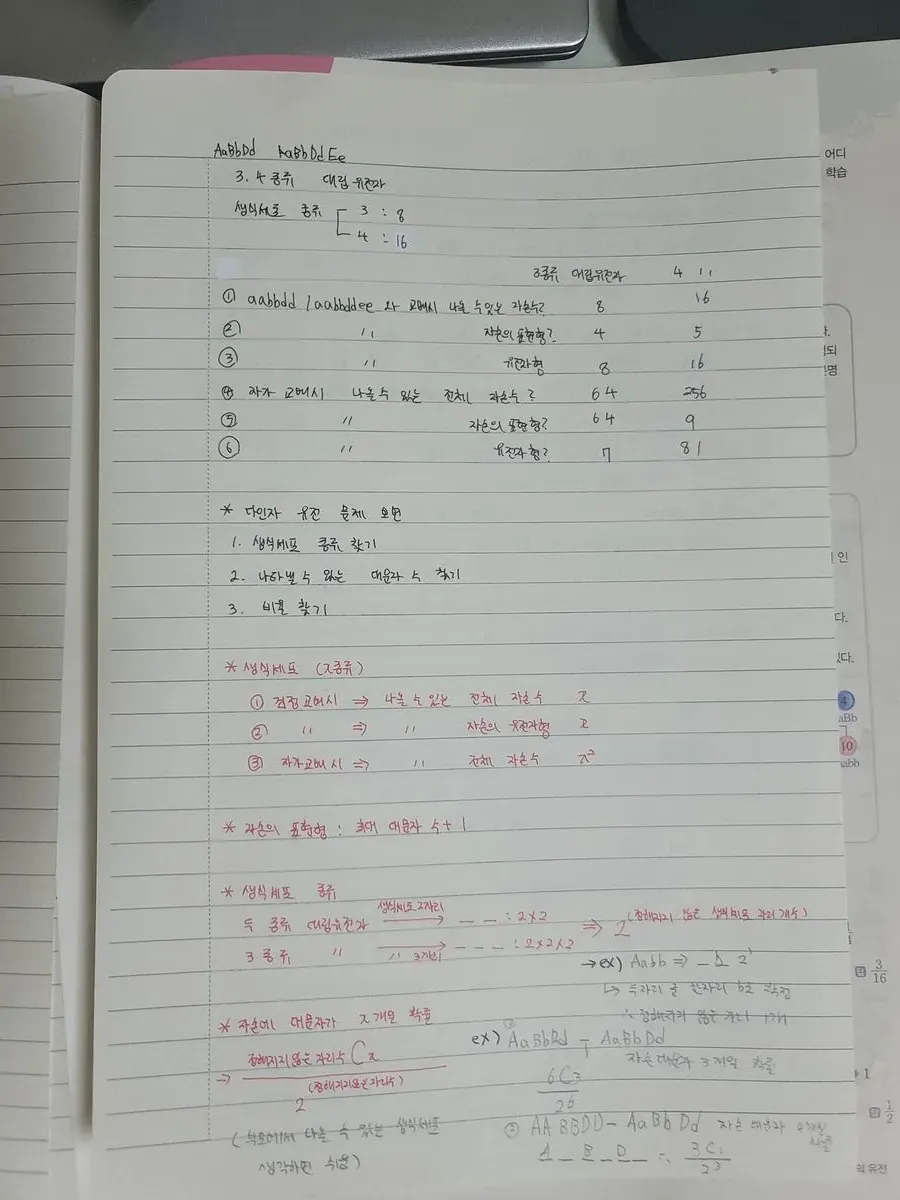 AaBbDd AaBbDdEe
3. 4 종류 대립유전자
생식세포 종류 3 : 8
4 : 16
3종류 대립유전자 4 〃
① aabbdd / aabbddee 와 교배시 나올 수 있는 자손수? 8 16
② 〃 자손의 표현형? 4 5
③ 〃 유전자형 8 16
④ 자가 교배시 나올 수 있는 전체 자손수? 64 256
⑤ 〃 자손의 표현형? 64 9
⑥ 〃 유전자형? 7 81
* 다인자 유전 문제 오면
1. 생식세포 종류 찾기
2. 나타낼 수 있는 대문자 수 찾기
3. 비율 찾기
* 생식세포 (x종류)
① 검정교배시 ⇒ 나올 수 있는 전체 자손수 x
② 〃 ⇒ 〃 자손의 유전자형 x
③ 자가교배시 ⇒ 〃 전체 자손수 x²
* 자손의 표현형 : 최대 대문자 수 + 1
* 생식세포 종류
두 종류 대립유전자 생식세포 2자리 → _ _ : 2×2 ⇒ 2 (정해지지 않은 생식세포 자리 개수)
3 종류 〃 〃 3자리 → _ _ _ : 2×2×2
→ ex) Aabb ⇒ _ b 2¹
↳ 두자리 중 한자리 b로 확정
∴ 정해지지 않은 자리 1개
* 자손에 대문자가 x개일 확률
→ 정해지지않은자리수 C x
2 (정해지지않은자리수)
(부모에서 나올 수 있는 생식세포
생각하면 쉬움)
ex) ① AaBbDd - AaBbDd
자손 대문자 3개일 확률
6C3
2⁶
② AABBDD - AaBbDd 자손 대문자 4개일 확률
A _ B _ D _ ∴ 3C1
2³
어디
학습
명
인
다.
있다.
4
aBb
10
aabb
답 3/16
1
답 1/2
의 유전